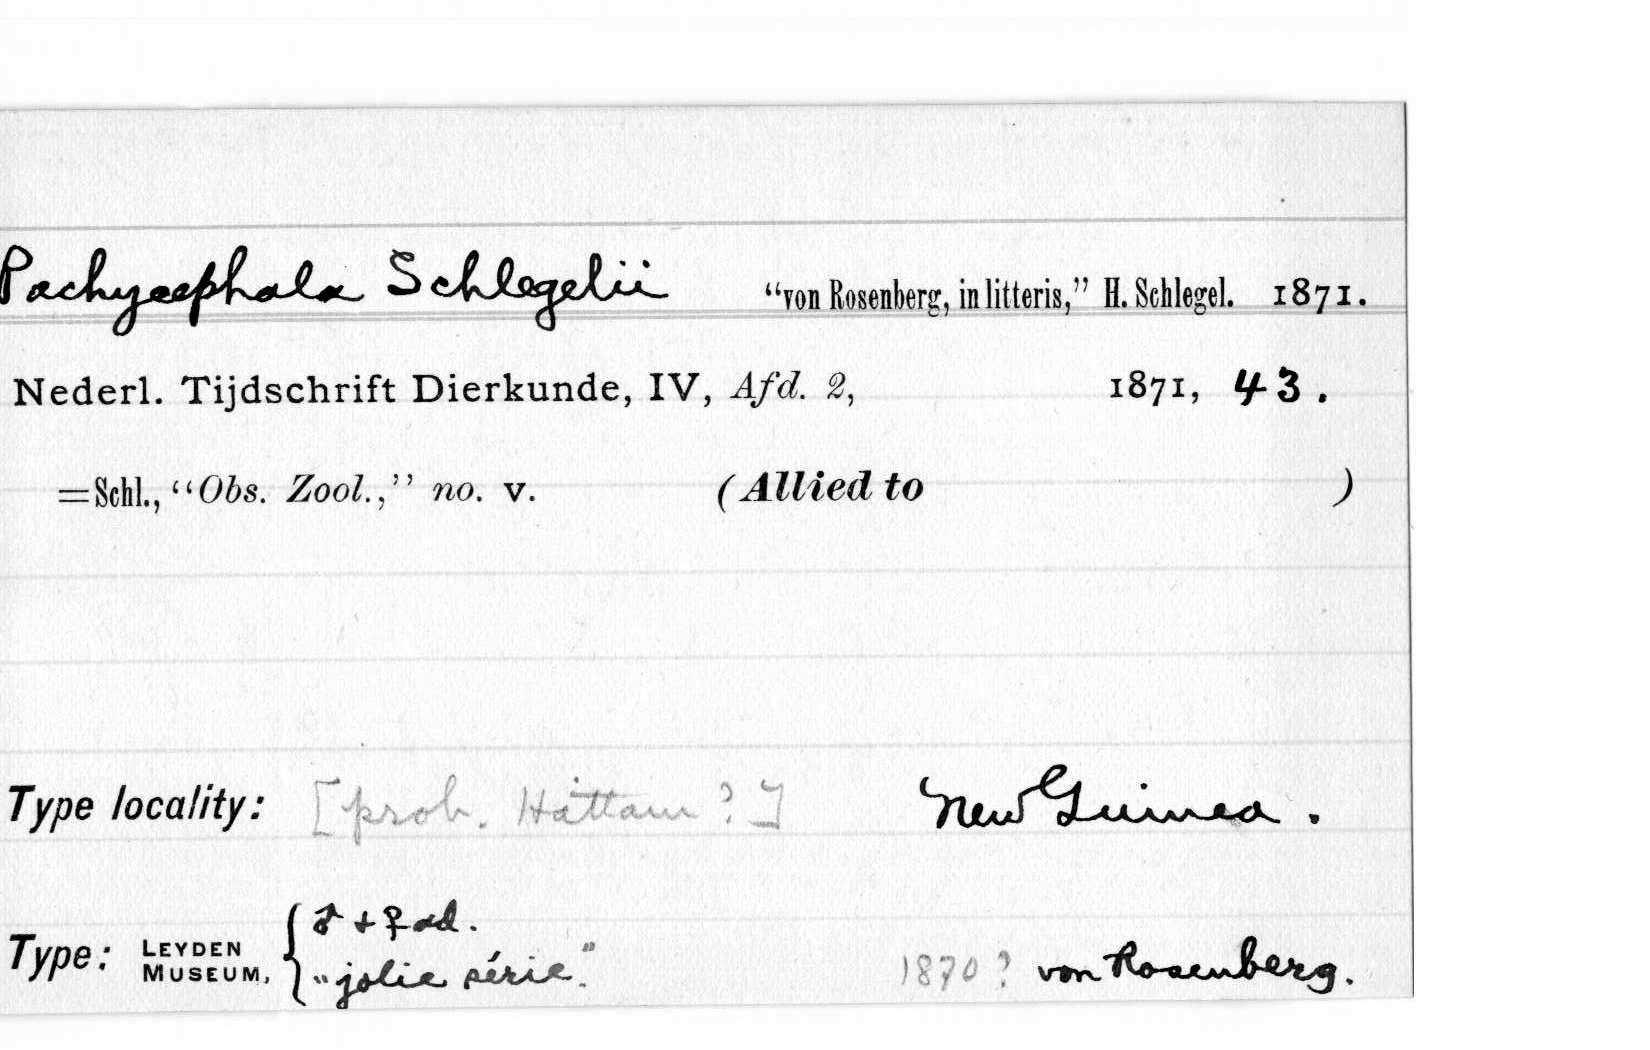 Pachycephala Schlegelii "von Rosenberg, in litteris," H. Schlegel. 1871.
Nederl. Tijdschrift Dierkunde, IV, Afd. 2, 1871, 43.
=Schl., "Obs. Zool.," no. v. (Allied to )
Type locality: [prob. Hattam ?] New Guinea.
Type: LEYDEN MUSEUM, { ♂ + ♀ ad.
"jolie série." 1870? von Rosenberg.